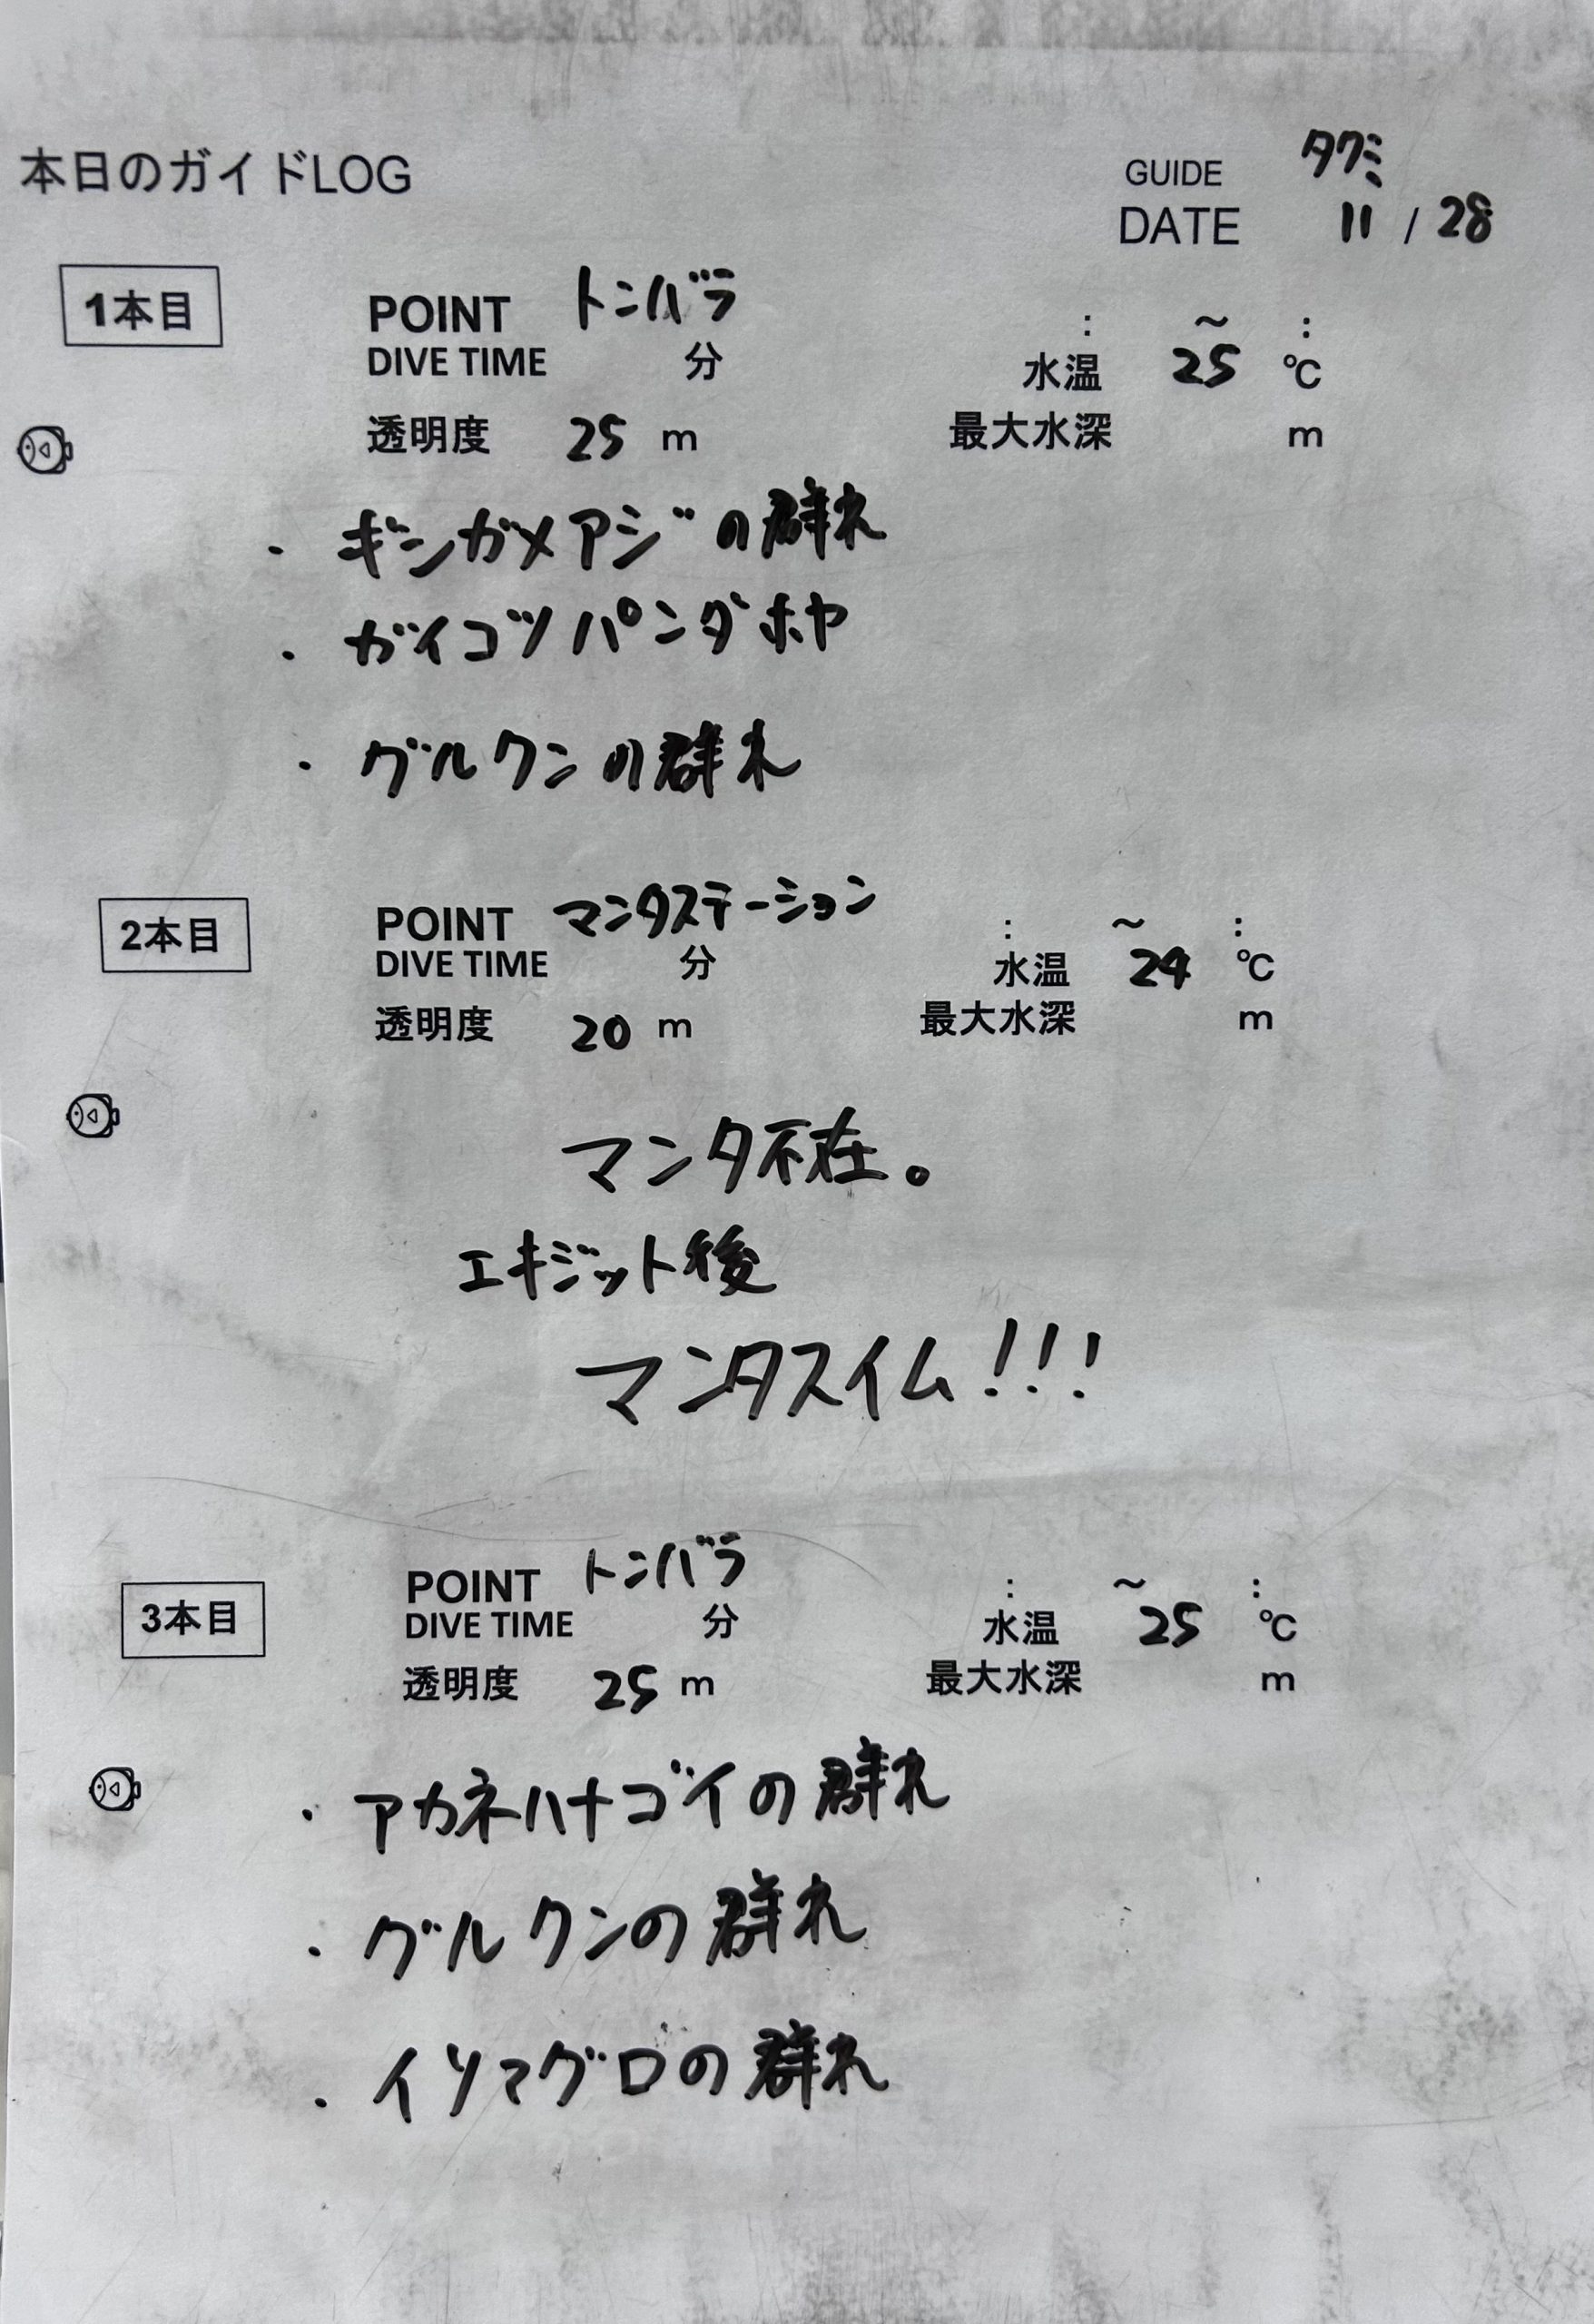 本日のガイドLOG
GUIDE タクミ
DATE 11 / 28
1本目
POINT トンバラ : ～ :
DIVE TIME 分 水温 25 ℃
透明度 25 m 最大水深 m
・ギンガメアジの群れ
・ガイコツパンダホヤ
・グルクンの群れ
2本目
POINT マンタステーション : ～ :
DIVE TIME 分 水温 24 ℃
透明度 20 m 最大水深 m
マンタ不在。
エキジット後
マンタスイム!!!
3本目
POINT トンバラ : ～ :
DIVE TIME 分 水温 25 ℃
透明度 25 m 最大水深 m
・アカネハナゴイの群れ
・グルクンの群れ
・イソマグロの群れ